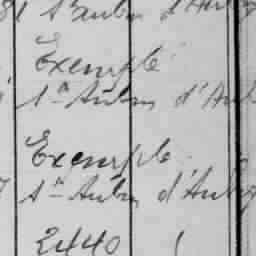 St Aubin d'Aub
Exempté
St Aubin d'Aub
Exempté
St Aubin d'Aubig
2440